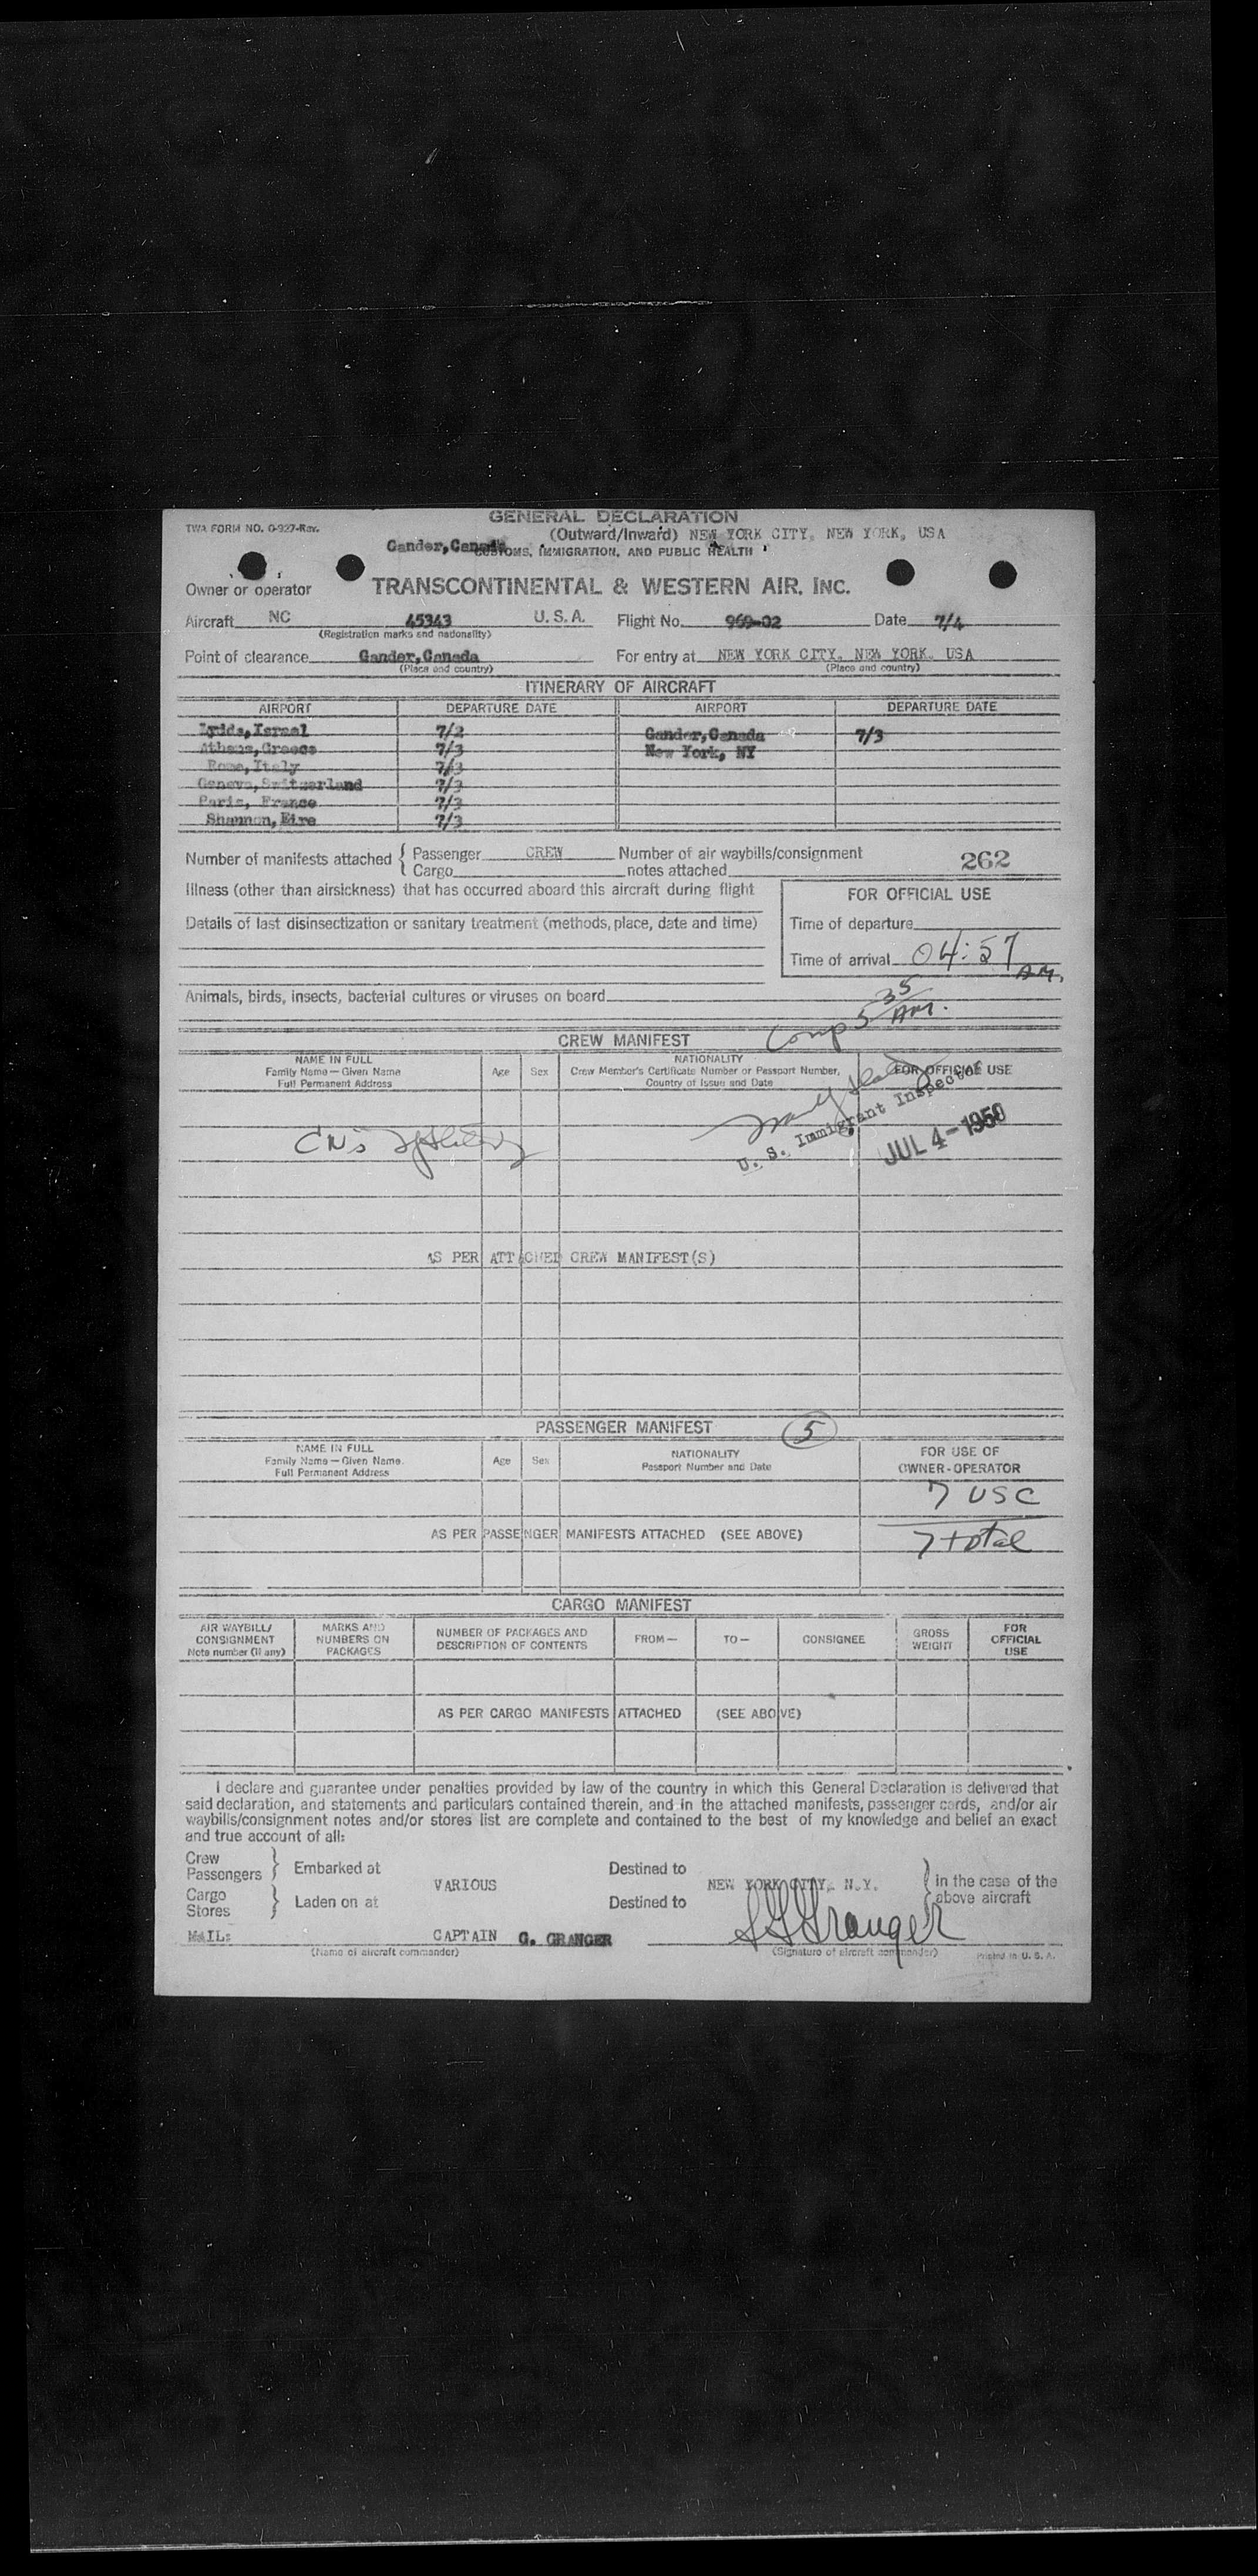 GENERAL DECLARATION
TWA FORM NO. O-927-Rev.
(Outward/Inward) NEW YORK CITY, NEW YORK, USA
Gander,Canada CUSTOMS, IMMIGRATION, AND PUBLIC HEALTH
Owner or operator TRANSCONTINENTAL & WESTERN AIR, INC.
Aircraft NC 45343 U.S.A. Flight No. 969-02 Date 7/4
(Registration marks and nationality)
Point of clearance Gander,Canada For entry at NEW YORK CITY, NEW YORK, USA
(Place and country) (Place and country)
ITINERARY OF AIRCRAFT
AIRPORT DEPARTURE DATE AIRPORT DEPARTURE DATE
Lydda,Israel 7/2 Gander,Canada 7/3
Athens,Greece 7/3 New York, NY
Rome,Italy 7/3
Geneva,Switzerland 7/3
Paris, France 7/3
Shannon,Eire 7/3
Number of manifests attached { Passenger CREW Number of air waybills/consignment 262
Cargo notes attached
Illness (other than airsickness) that has occurred aboard this aircraft during flight
FOR OFFICIAL USE
Details of last disinsectization or sanitary treatment (methods, place, date and time)
Time of departure
Time of arrival 04:57 AM.
Animals, birds, insects, bacterial cultures or viruses on board
Comp 5 35 AM.
CREW MANIFEST
NAME IN FULL
Family Name — Given Name
Full Permanent Address
Age Sex
NATIONALITY
Crew Member's Certificate Number or Passport Number,
Country of Issue and Date
FOR OFFICIAL USE
U. S. Immigrant Inspector
JUL 4 - 1950
AS PER ATTACHED CREW MANIFEST(S)
PASSENGER MANIFEST 5
NAME IN FULL
Family Name — Given Name.
Full Permanent Address
Age Sex
NATIONALITY
Passport Number and Date
FOR USE OF
OWNER-OPERATOR
7 USC
AS PER PASSENGER MANIFESTS ATTACHED (SEE ABOVE) 7 total
CARGO MANIFEST
AIR WAYBILL/
CONSIGNMENT
Note number (if any)
MARKS AND
NUMBERS ON
PACKAGES
NUMBER OF PACKAGES AND
DESCRIPTION OF CONTENTS
FROM— TO— CONSIGNEE
GROSS
WEIGHT
FOR
OFFICIAL
USE
AS PER CARGO MANIFESTS ATTACHED (SEE ABOVE)
I declare and guarantee under penalties provided by law of the country in which this General Declaration is delivered that
said declaration, and statements and particulars contained therein, and in the attached manifests, passenger cards, and/or air
waybills/consignment notes and/or stores list are complete and contained to the best of my knowledge and belief an exact
and true account of all:
Crew
Passengers } Embarked at Destined to
VARIOUS NEW YORK CITY, N.Y. } in the case of the
above aircraft
Cargo
Stores } Laden on at Destined to
MAIL: CAPTAIN G. GRANGER Granger
(Name of aircraft commander) (Signature of aircraft commander) Printed in U. S. A.